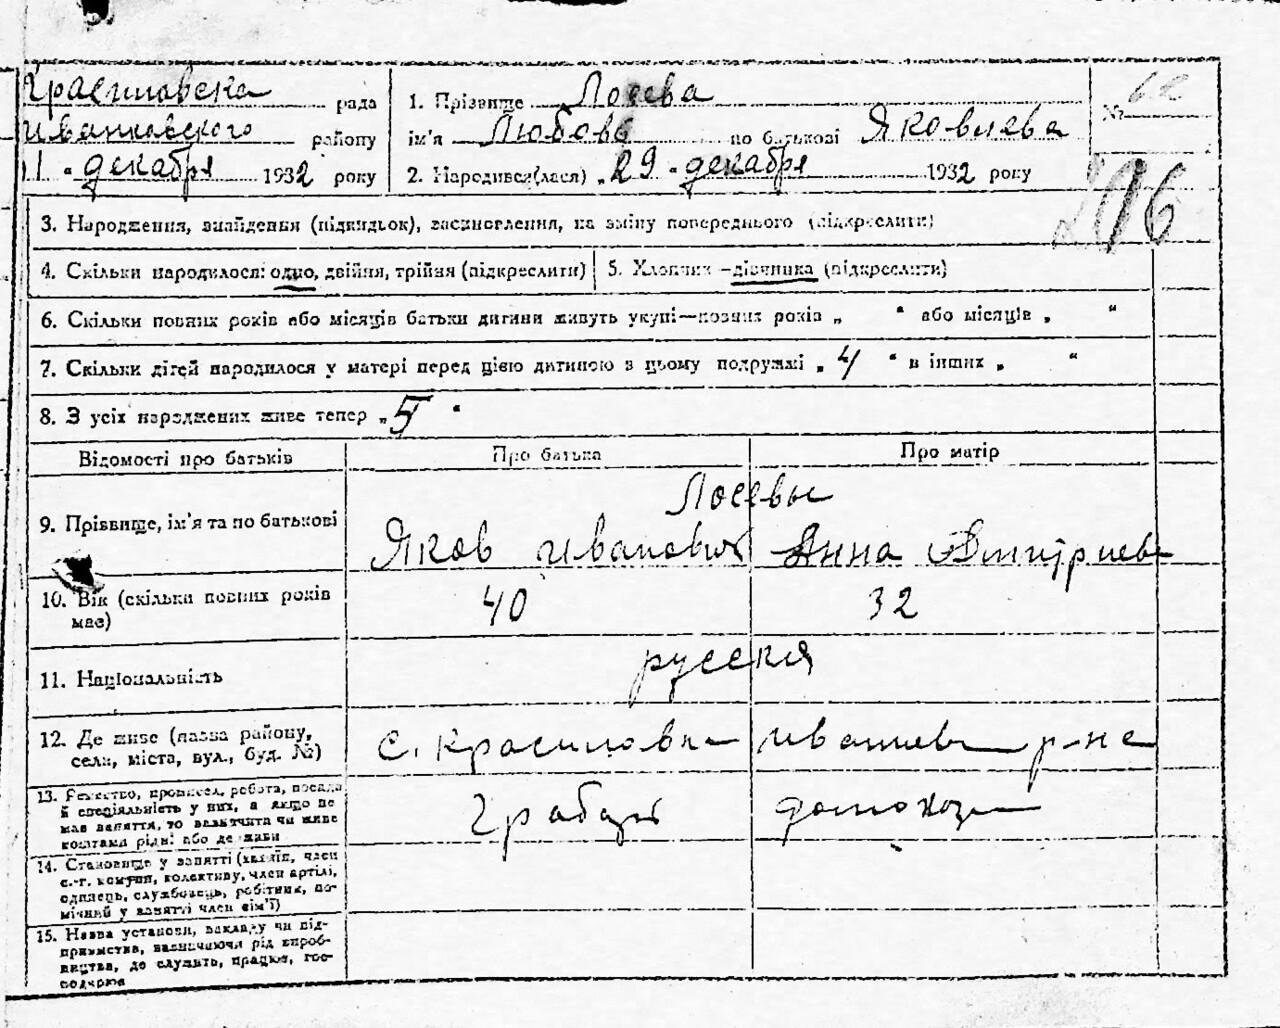 Красиловска рада
Иванковского району
11 " декабря 1932 року
1. Прізвище Лосева
ім'я Любовь по батькові Яковлева
2. Народився(лася) „ 29 " декабря 1932 року
№ 62
206
3. Народження, знайдення (підкидьок), засиновлення, на зміну попереднього (підкреслити)
4. Скільки народилося: одно, двійня, трійня (підкреслити)
5. Хлопчик – дівчинка (підкреслити)
6. Скільки повних років або місяців батьки дитини живуть укупі—повних років „ " або місяців „ "
7. Скільки дітей народилося у матері перед цією дитиною з цьому подружжі „ 4 " в інших „ "
8. З усіх народжених живе тепер „ 5 "
Відомості про батьків
Про батька
Про матір
9. Прізвище, ім'я та по батькові
Лосевы
Яков Иванович
Анна Дмитриев
10. Вік (скільки повних років
має)
40
32
11. Національність
русския
12. Де живе (назва району,
села, міста, вул., буд. №)
с. Красиловка
р-на
13. Ремество, промисел, робота, посада
й спеціяльність у них, а якщо не
має заняття, то зазначити чи живе
коштами рідні або держави
Грабарь
домохоз
14. Становище у занятті (хазяїн, член
с.-г. комуни, колективу, член артілі,
одинець, службовець, робітник, по-
мічний у занятті член сім'ї)
15. Назва установи, закладу чи під-
приємства, зазначаючи рід вироб-
ництва, де служить, працює, гос-
подарює